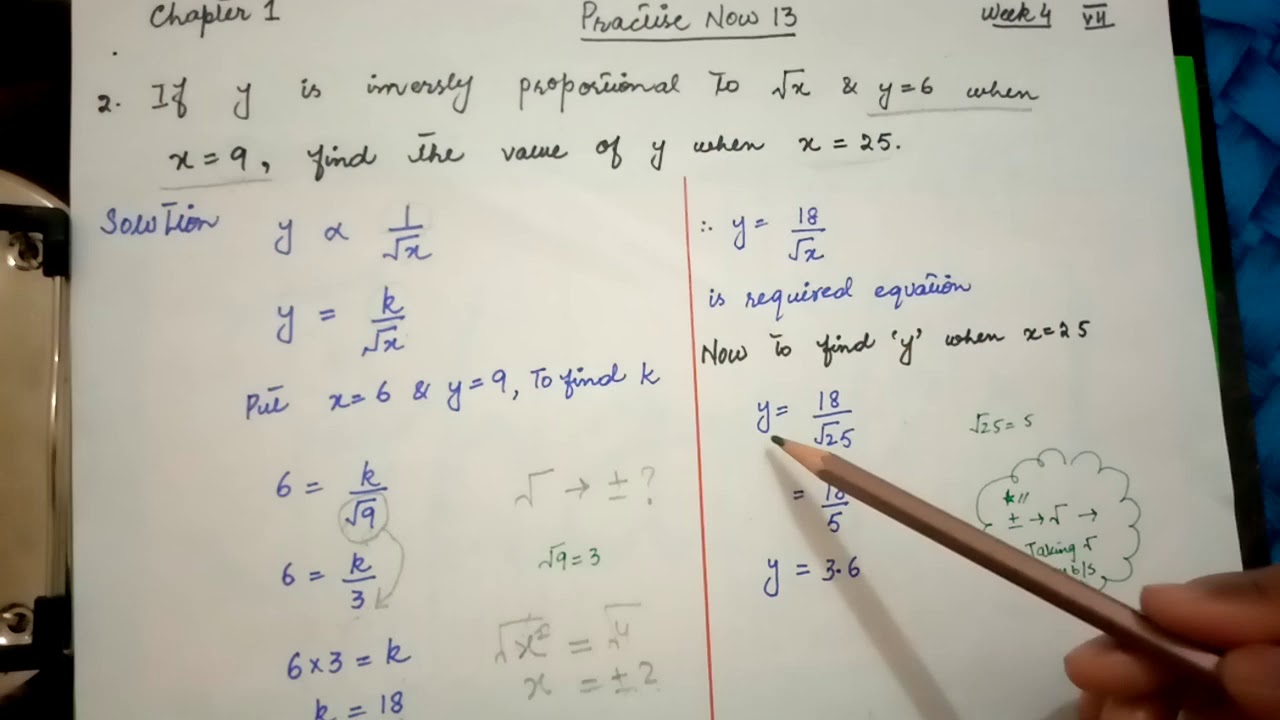 Chapter 1
Practise Now 13
Week 4 VII
2. If y is inversly proportional to √x & y=6 when
x = 9, find the value of y when x = 25.
Solution y ∝ 1/√x
y = k/√x
Put x=6 & y=9, To find k
6 = k/√9
6 = k/3
6×3 = k
k = 18
√ → ± ?
√9 = 3
√x² = √4
x = ±2
∴ y = 18/√x
is required equation
Now to find 'y' when x=25
y = 18/√25
= 18/5
y = 3.6
√25 = 5
± → √ →
Taking √
b/s